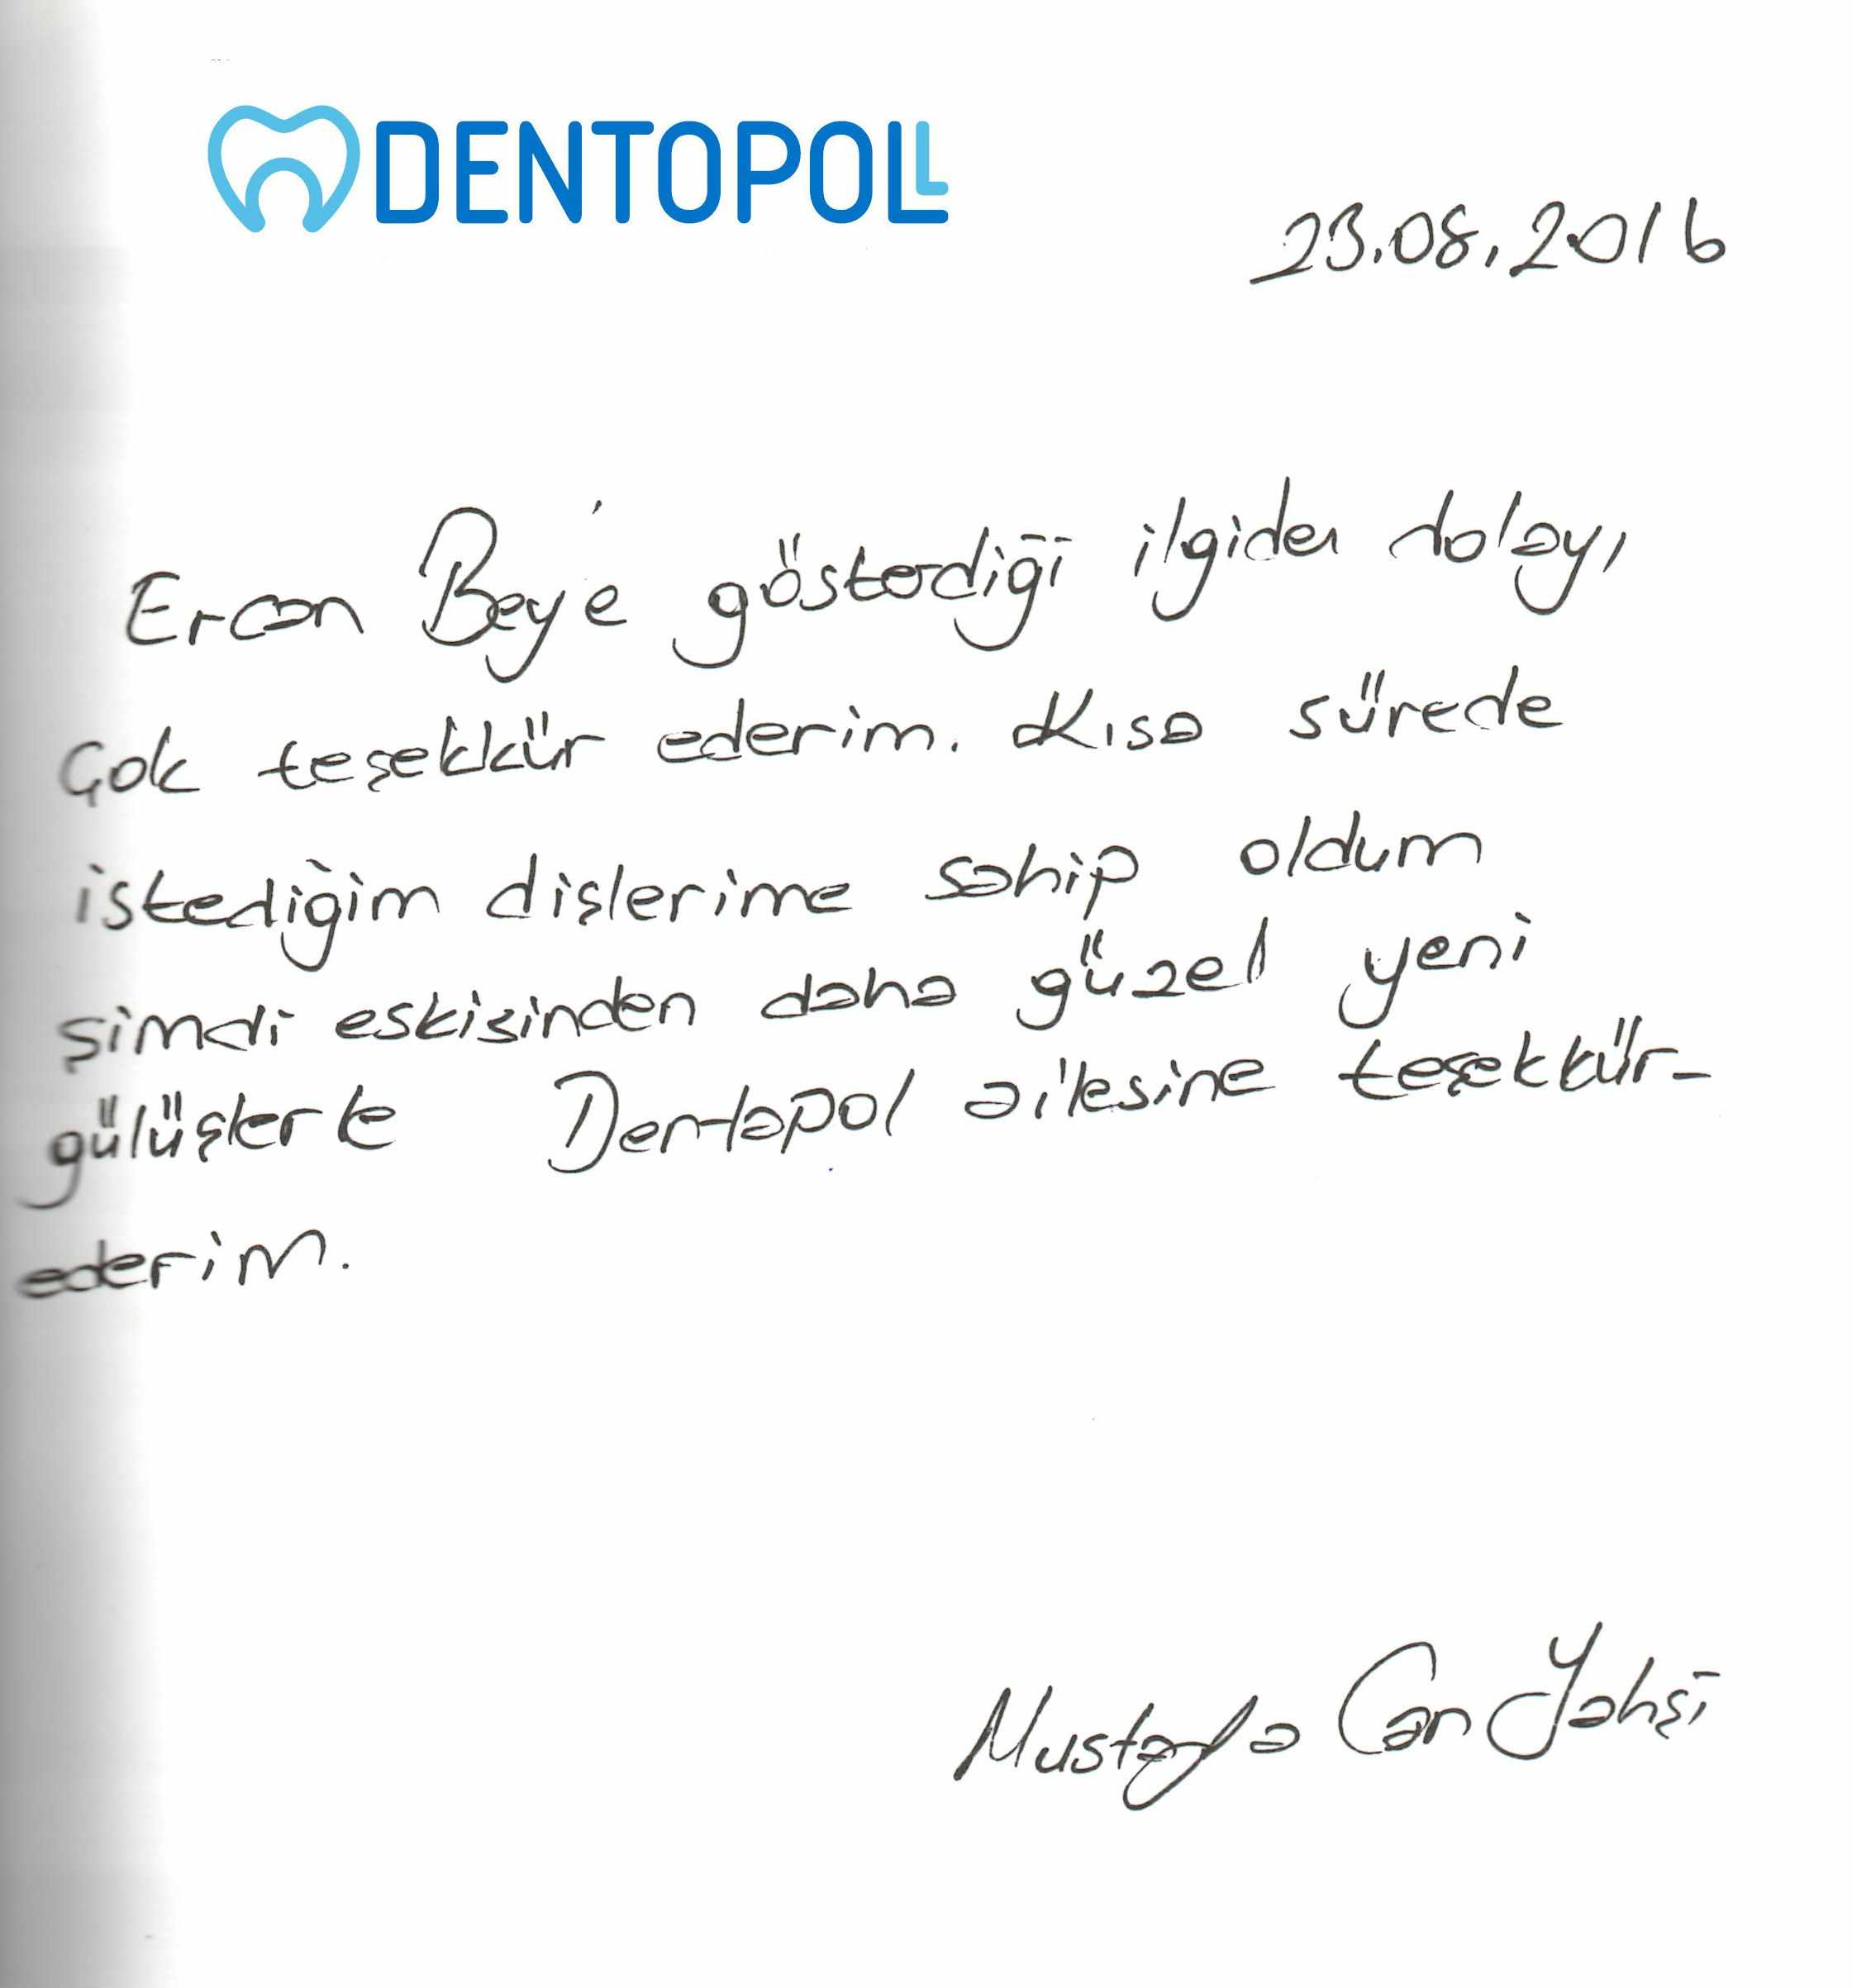 DENTOPOLL
23.08.2016
Ercan Bey'e gösterdiği ilgiden dolayı
Çok teşekkür ederim. Kısa sürede
istediğim dişlerime sahip oldum
şimdi eskisinden daha güzel yeni
gülüşlerle Dentapol ailesine teşekkür-
ederim.
Mustafa Can Yahşi